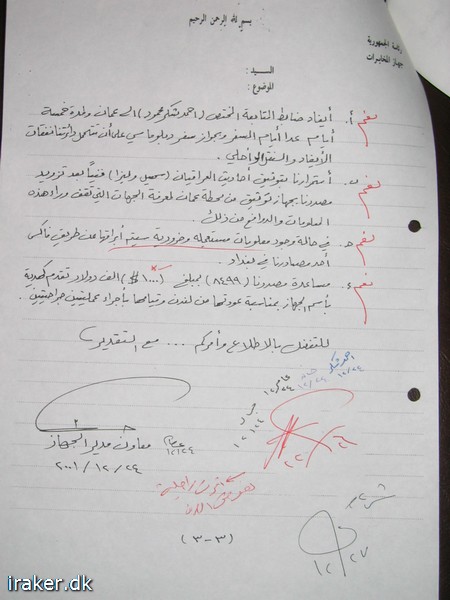 بسم الله الرحمن الرحيم
رئاسة الجمهورية
جهاز المخابرات
السيد :
الموضوع :
نعم أ. أيفاد ضابط المتابعة المختص (احمد شكر محمود) الى عمان ولمدة خمسة
أيام عدا أيام السفر وبجواز سفر دبلوماسي على أن تتحمل دائرتنا نفقات
الأيفاد والسفر الداخلي .
نعم ب. أستمرارنا بتوثيق أحاديث العراقيان (سهيل وليزا) فنياً بعد تزويد
مصدرنا بجهاز توثيق من محطة عمان لمعرفة الجهات التي تقف وراء هذه
المعلومات والدوافع من ذلك .
نعم جـ. في حالة وجود معلومات مستعجلة وضرورية سيتم أبراقها عن طريق فاكس
أحد مصادرنا في بغداد .
نعم د. مساعدة مصدرنا (٨٤٩٩) بمبلغ (١٠٠٠#) الف دولار تقدم كهدية
بأسم الجهاز بمناسبة عودتها من لندن وقيامها بأجراء عمليتين جراحيتين .
للتفضل بالاطلاع وأمركم ... مع التقدير
احمد شكر
١٢/٢٤
١٢/٢٤
١٢/٢٤
١٢/٢٤
معاون مدير الجهاز
٢٠٠١/١٢/٢٤
١٢/٢٤
١٢/٢٤
١٢/٢٧
(٣-٣)
iraker.dk